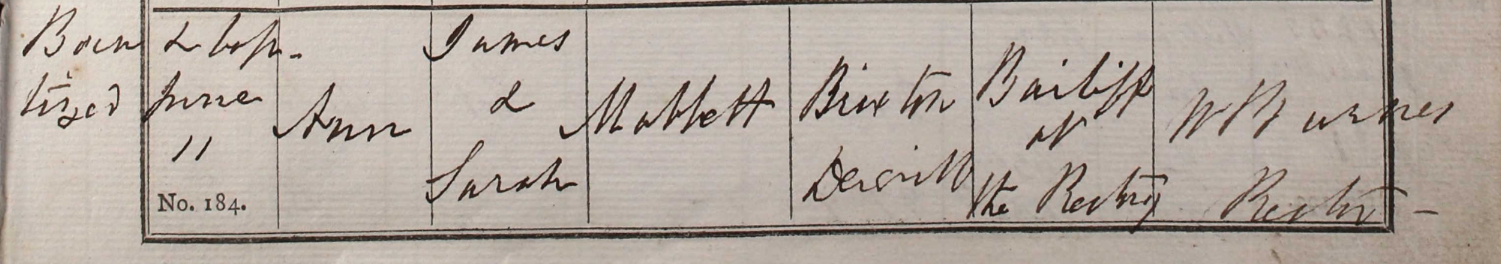 Born & bap-
tized June
11
No. 184.
Ann
James
&
Sarah
Mabbett
Brixton
Deverill
Bailiff
at
the Rectory
W Barnes
Rector -